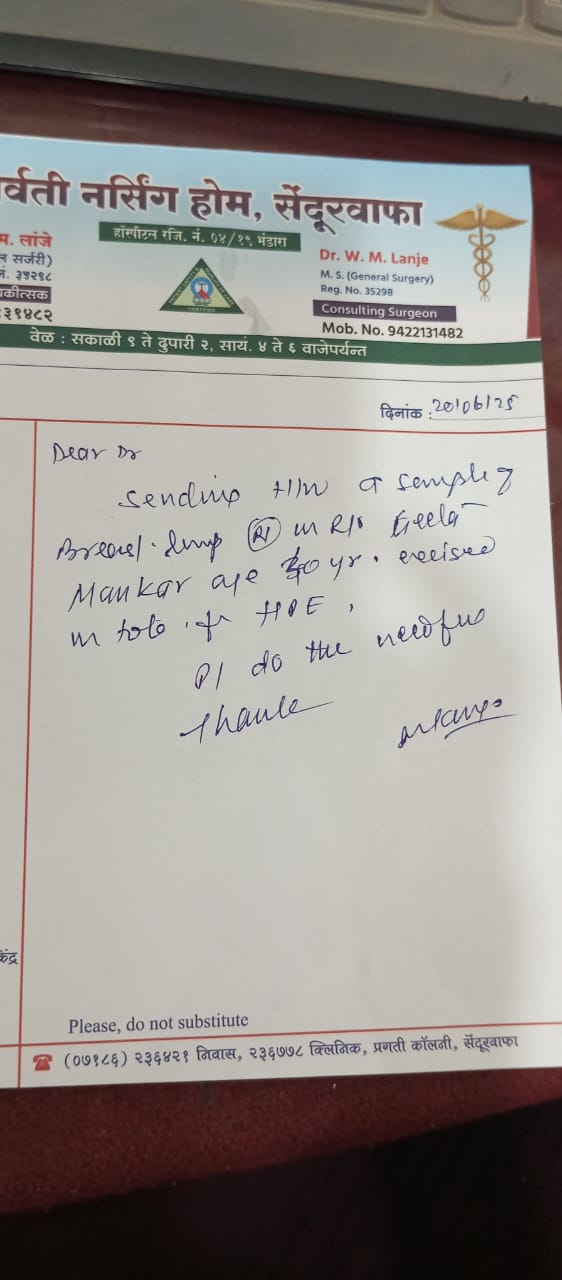 र्वती नर्सिंग होम, सेंदूरवाफा
हॉस्पीटल रजि. नं. ७४/१९ भंडारा
म. लांजे
ल सर्जरी)
नं. ३५२९८
कीत्सक
३१४८२
Dr. W. M. Lanje
M. S. (General Surgery)
Reg. No. 35298
Consulting Surgeon
Mob. No. 9422131482
CERTIFIED
वेळ : सकाळी ९ ते दुपारी २, सायं. ४ ते ६ वाजेपर्यन्त
दिनांक : 20/06/25
Dear Dr
Sending H/W a sample of
Breast lump (Rt) in
Mankar age yr. excised
in toto for HPE,
Pl do the needful
Thanks
केंद्र
Please, do not substitute
(०७१८६) २३६४२१ निवास, २३६७७८ क्लिनिक, प्रगती कॉलनी, सेंदूरवाफा